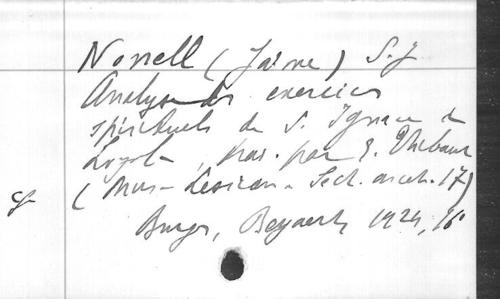 Nonell (Jaime) S.J
Analyse des exercices
spirituels de S. Ignace de
Loyola, trad. par E. Thibaut
(Mus- Lessian. Sect. ascét. 17)
Bruges, Beyaert, 1924, 16°
cf